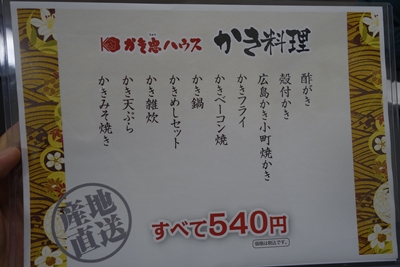 かき忠ハウス かき料理
酢がき
殻付かき
広島かき小町焼かき
かきフライ
かきベーコン焼
かき鍋
かきめしセット
かき雑炊
かき天ぷら
かきみそ焼き
産地
直送
すべて540円
価格は税込です。